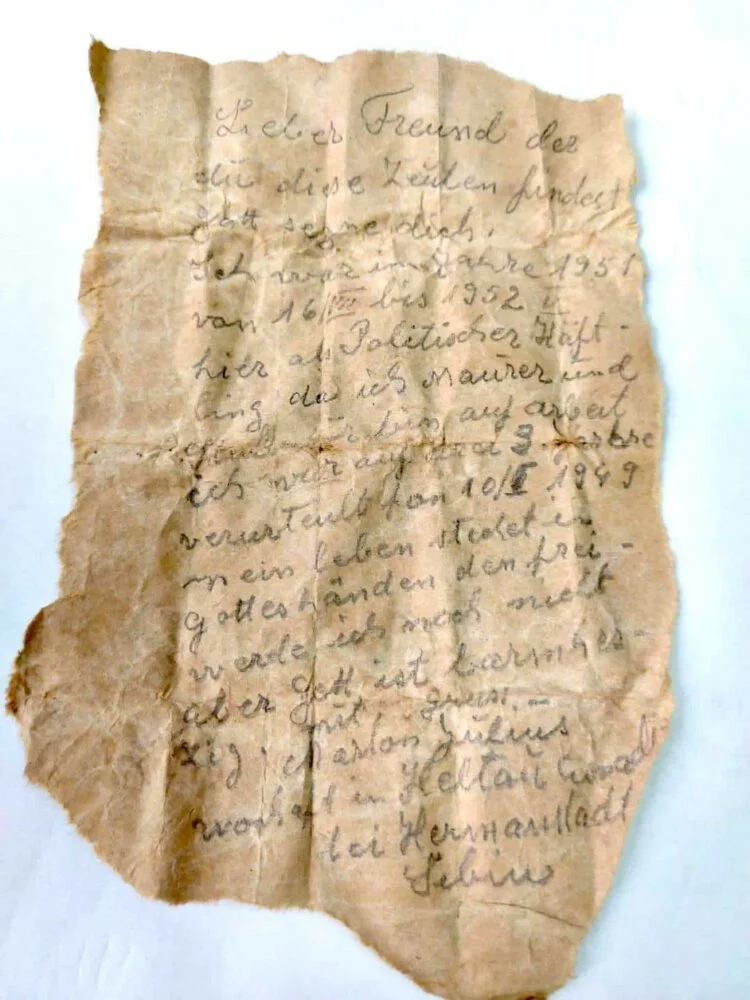 Lieber Freund der
du diese Zeulen findest
Gott segne dich.
Ich war im Jahre 1951
von 16/VIII bis 1952 V
hier als Politischer Häft-
ling da ich Maurer und
bin auf arbeit
ich war auf 3 Jahre
verurteult fon 10/I 1949
mein leben stehet in
gotteshänden den frei-
werde ich noch nicht
aber gott ist barmhes-
zig. mit gruss. -
Marton Julius
wohaft in Heltau
bei Hermanstadt
Sebiu